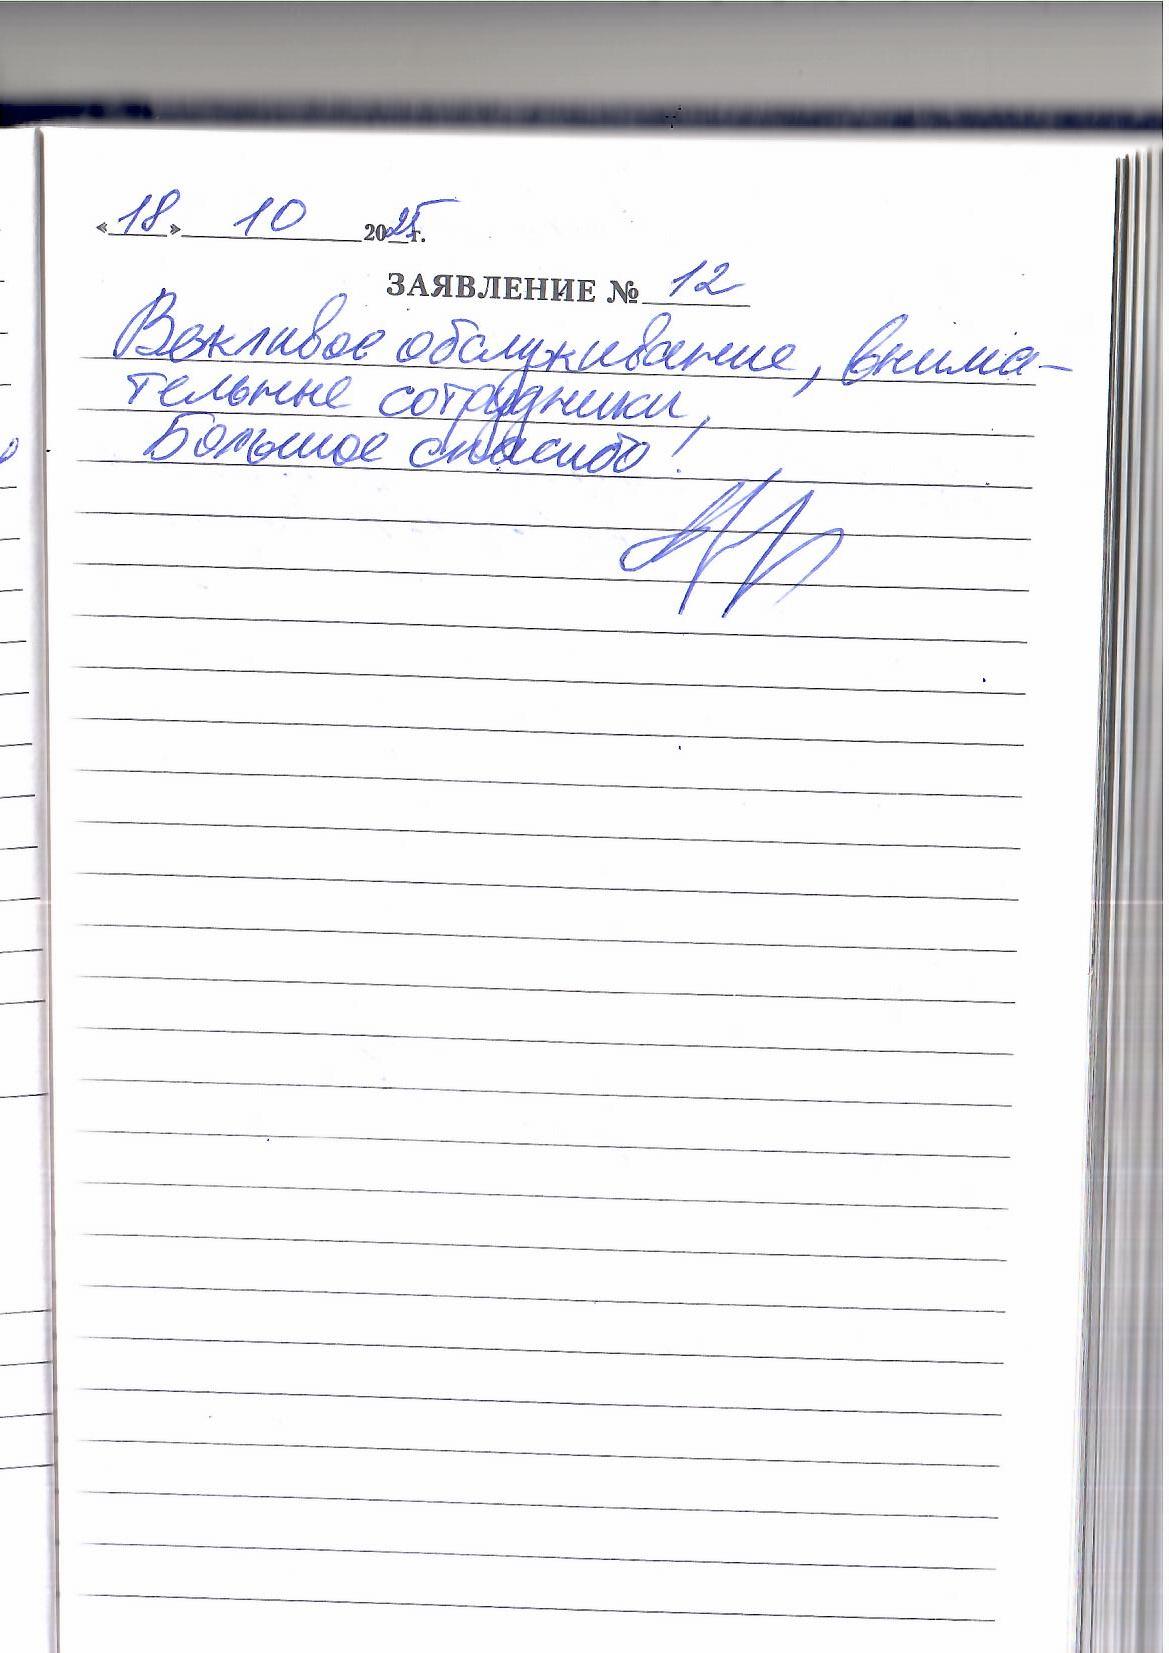 «18» 10 2025 г.
ЗАЯВЛЕНИЕ № 12
Вежливое обслуживание, внима-
тельные сотрудники,
Большое спасибо!